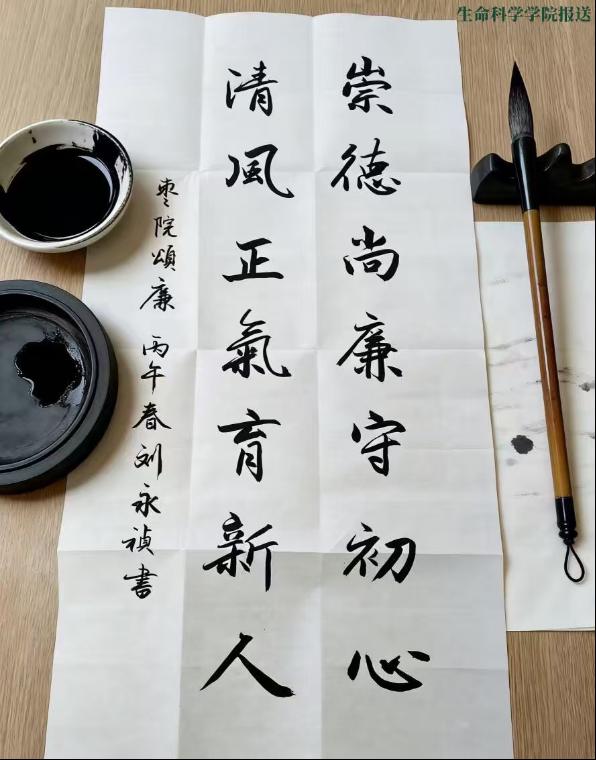 生命科学学院报送
崇德尚廉守初心
清風正氣育新人
枣院頌廉 丙午春刘永祯書